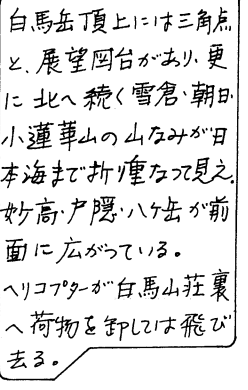 白馬岳頂上には三角点
と、展望図台があり、更
に北へ続く雪倉・朝日・
小蓮華山の山なみが日
本海まで折り重なって見え、
妙高・戸隠・八ヶ岳が前
面に広がっている。
ヘリコプターが白馬山荘裏
へ荷物を卸しては飛び
去る。